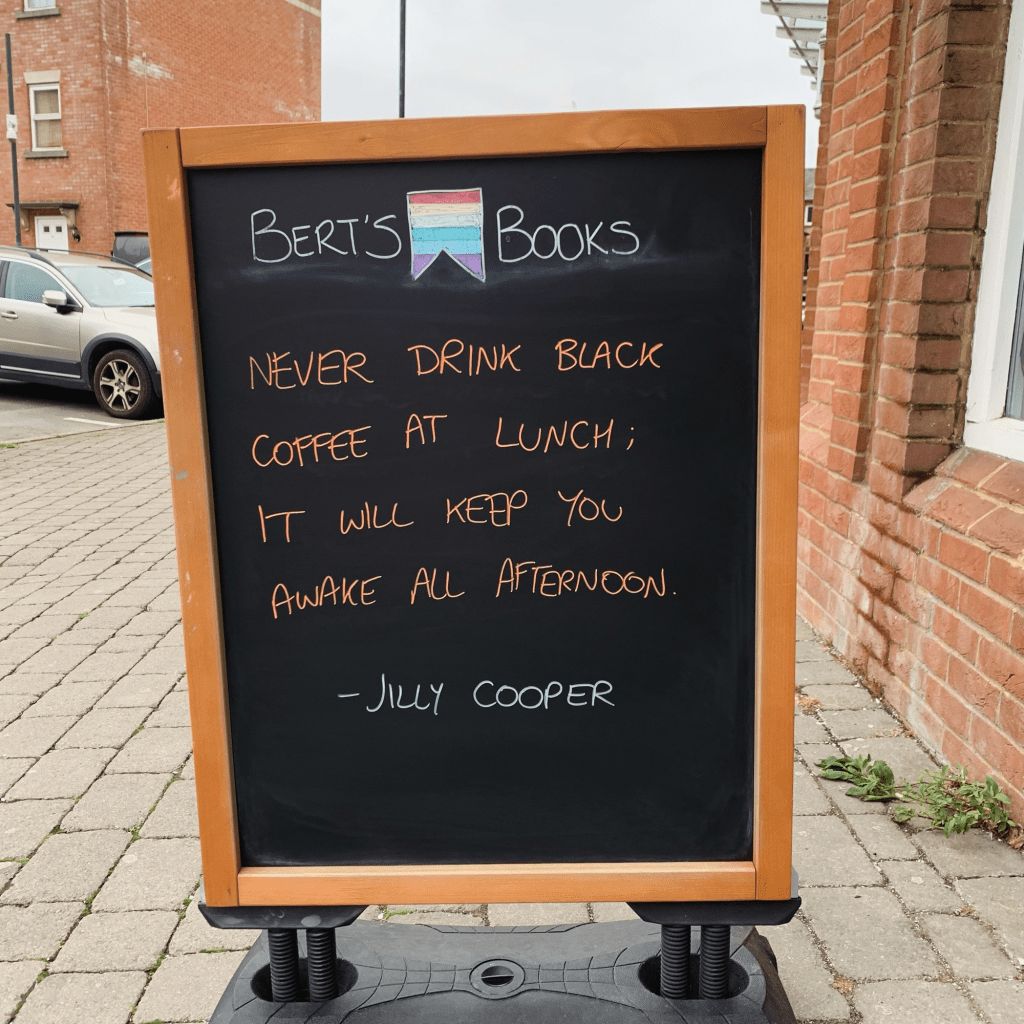 BERT'S BOOKS
NEVER DRINK BLACK
COFFEE AT LUNCH;
IT WILL KEEP YOU
AWAKE ALL AFTERNOON.
-JILLY COOPER